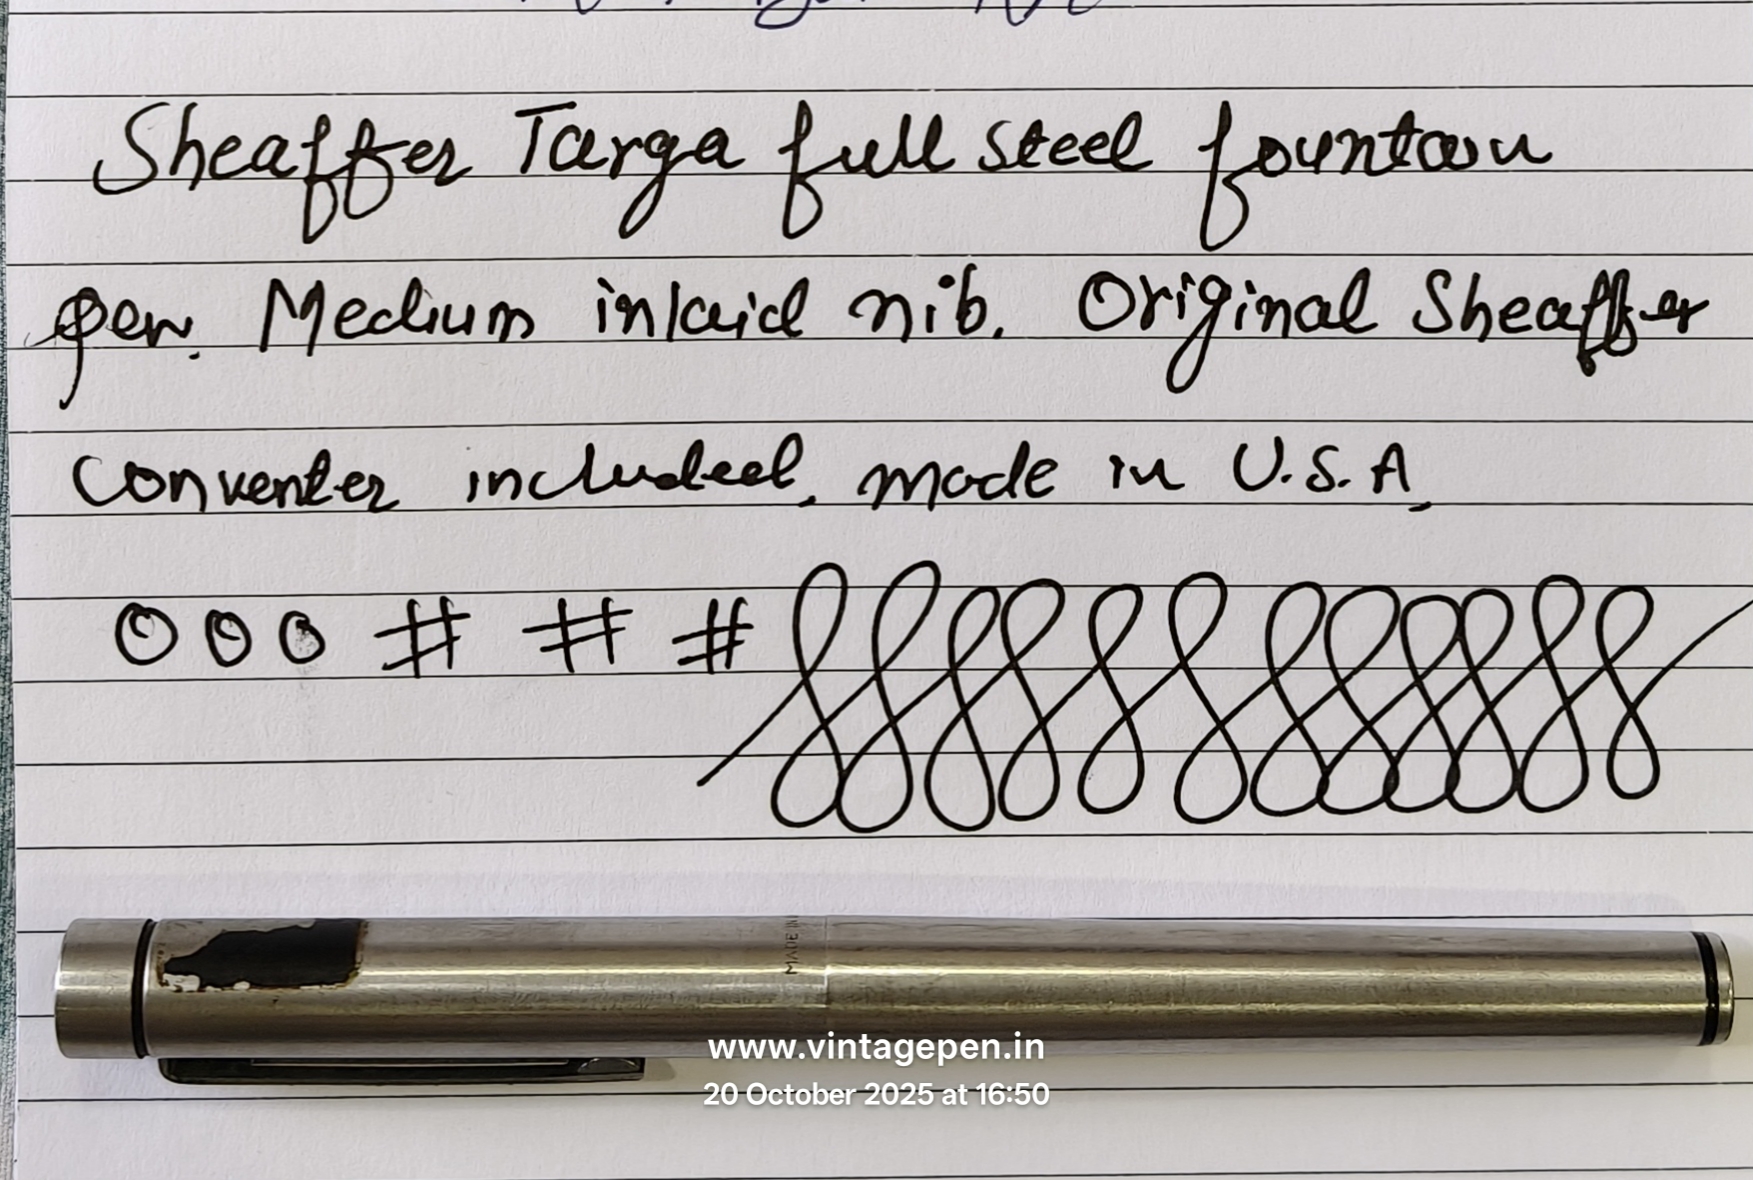 Sheaffer Targa full steel fountain
pen. Medium inlaid nib. Original Sheaffer
Converter included. made in U.S.A.
O O O # # #
MADE IN
www.vintagepen.in
20 October 2025 at 16:50